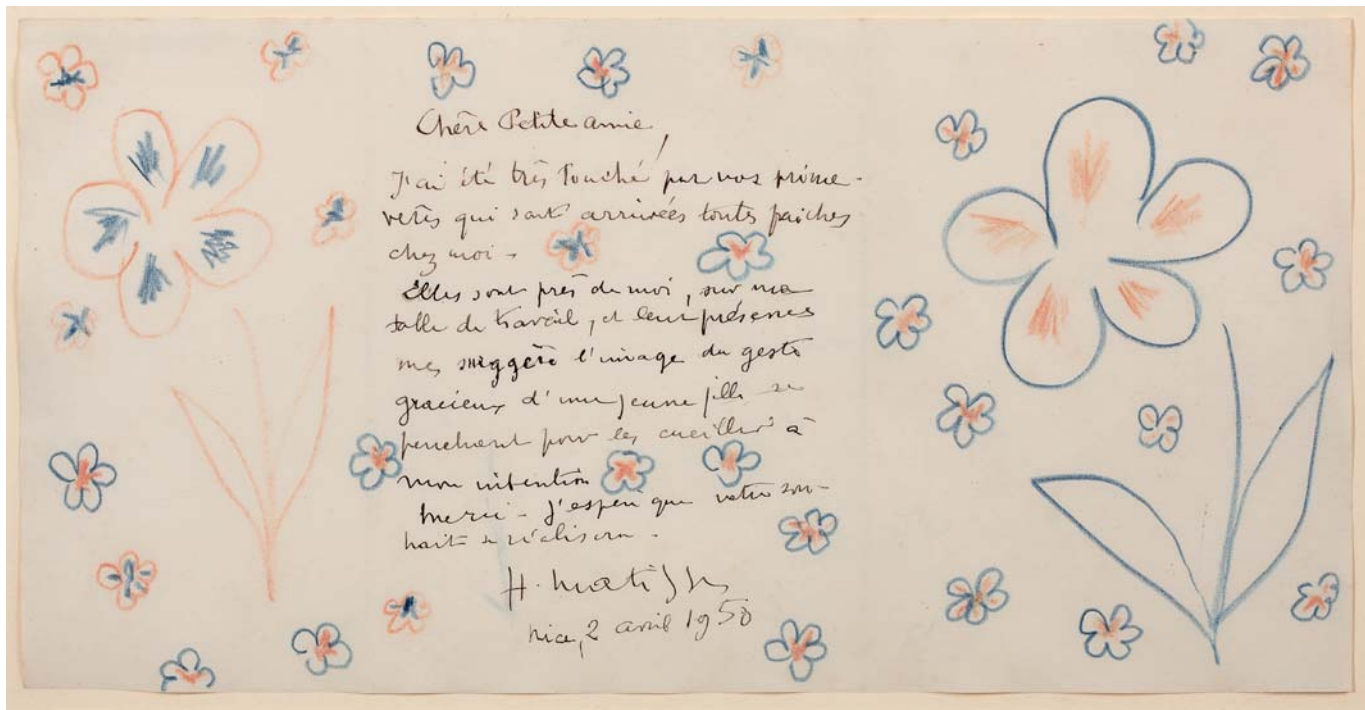 Chère Petite amie,
J'ai été très touché par vos prime-
vères qui sont arrivées toutes fraiches
chez moi -
Elles sont près de moi, sur ma
table de travail, et leur présence
me suggère l'image du geste
gracieux d'une jeune fille se
penchant pour les cueillir à
mon intention
Merci - J'espère que votre sou-
hait se réalisera -
H. Matisse
Nice, 2 avril 1950